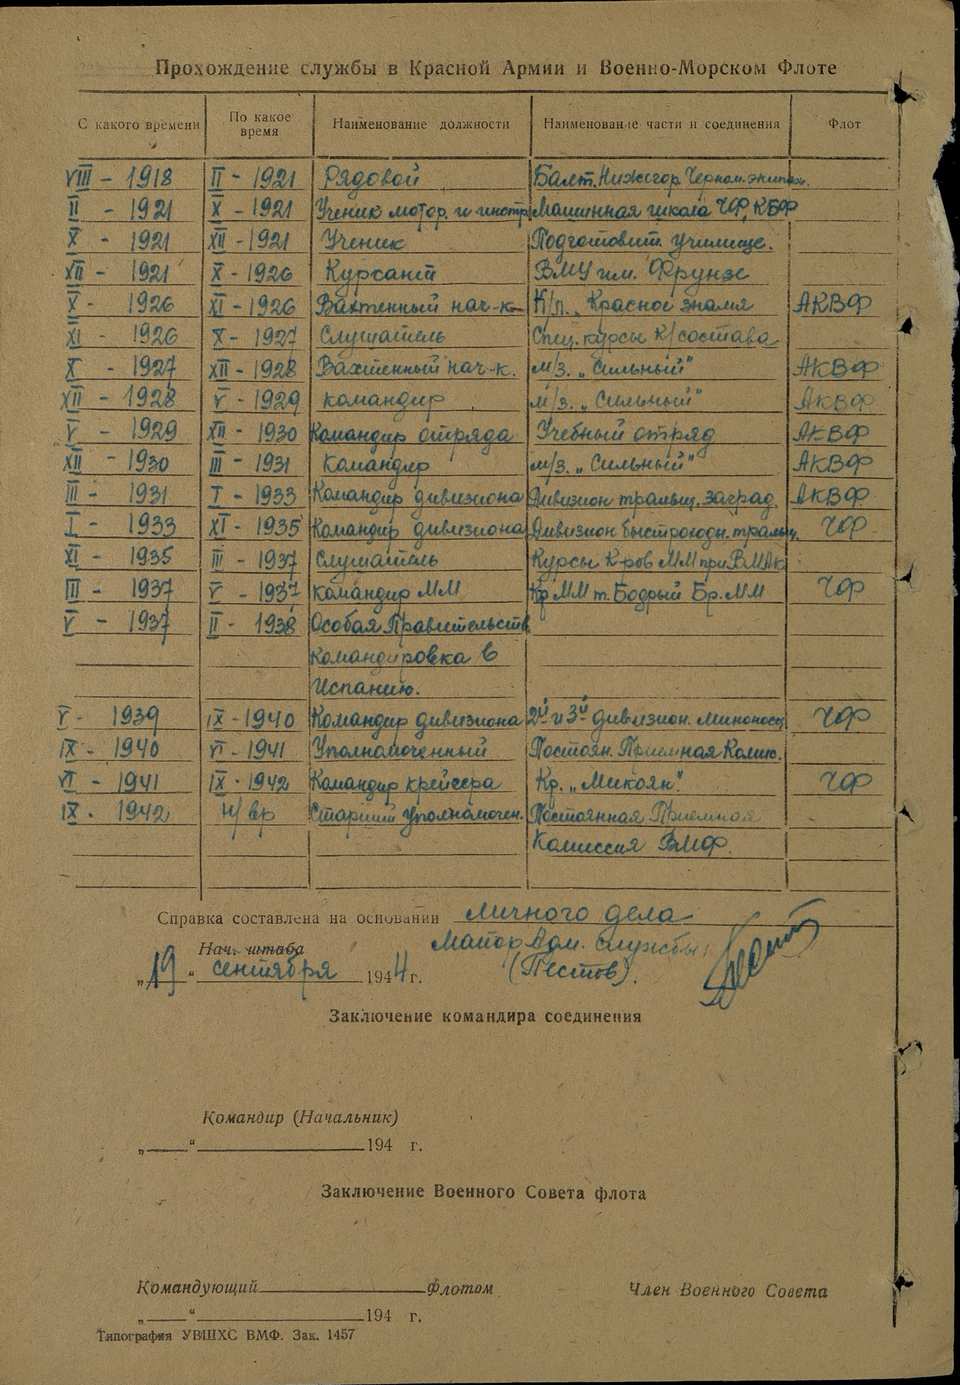 Прохождение службы в Красной Армии и Военно-Морском Флоте
С какого времени По какое время Наименование должности Наименование части и соединения Флот
VIII - 1918 II - 1921 Рядовой Балт. Нижегор. Черном. экипаж.
II - 1921 X - 1921 Ученик мотор. и инстр. Машинная школа ЧФ, КБФ
X - 1921 XII - 1921 Ученик Подготовит. училище.
XII - 1921 X - 1926 Курсант ВМУ им. Фрунзе
X - 1926 XI - 1926 Вахтенный нач-к К/л. „Красное знамя АКВФ
XI - 1926 X - 1927 Слушатель Спец. курсы К/состава
X - 1927 XII - 1928 Вахтенный нач-к. м/з. „Сильный" АКВФ
XII - 1928 V - 1929 командир м/з. „Сильный" АКВФ
V - 1929 XII - 1930 Командир отряда Учебный отряд АКВФ
XII - 1930 III - 1931 командир м/з. „Сильный" АКВФ
III - 1931 I - 1933 Командир дивизиона Дивизион тральщ. заград. АКВФ
I - 1933 XI - 1935 Командир дивизиона Дивизион быстроходн. тральщ. ЧФ
XI - 1935 III - 1937 Слушатель Курсы К-ров ММ при ВМАк
III - 1937 V - 1937 командир ММ Кр ММ т. Бодрый Бр. ММ ЧФ
V - 1937 II - 1938 Особая Правительств
командировка в
Испанию.
V - 1939 IX - 1940 Командир дивизиона 2й и 3й дивизион. миноносц. ЧФ
IX - 1940 VI - 1941 Уполномоченный Постоян. Приемная Комис.
VI - 1941 IX - 1942 Командир крейсера Кр. „Микоян". ЧФ
IX - 1942 н/вр Старший уполномочен. Постоянная Приемная
Комиссия ВМФ.
Справка составлена на основании личного дела
Нач. штаба Майор Адм. службы
„19" сентября 1944 г. (Пестов).
Заключение командира соединения
Командир (Начальник)
„ " 194 г.
Заключение Военного Совета флота
Командующий флотом Член Военного Совета
„ " 194 г.
Типография УВШХС ВМФ. Зак. 1457